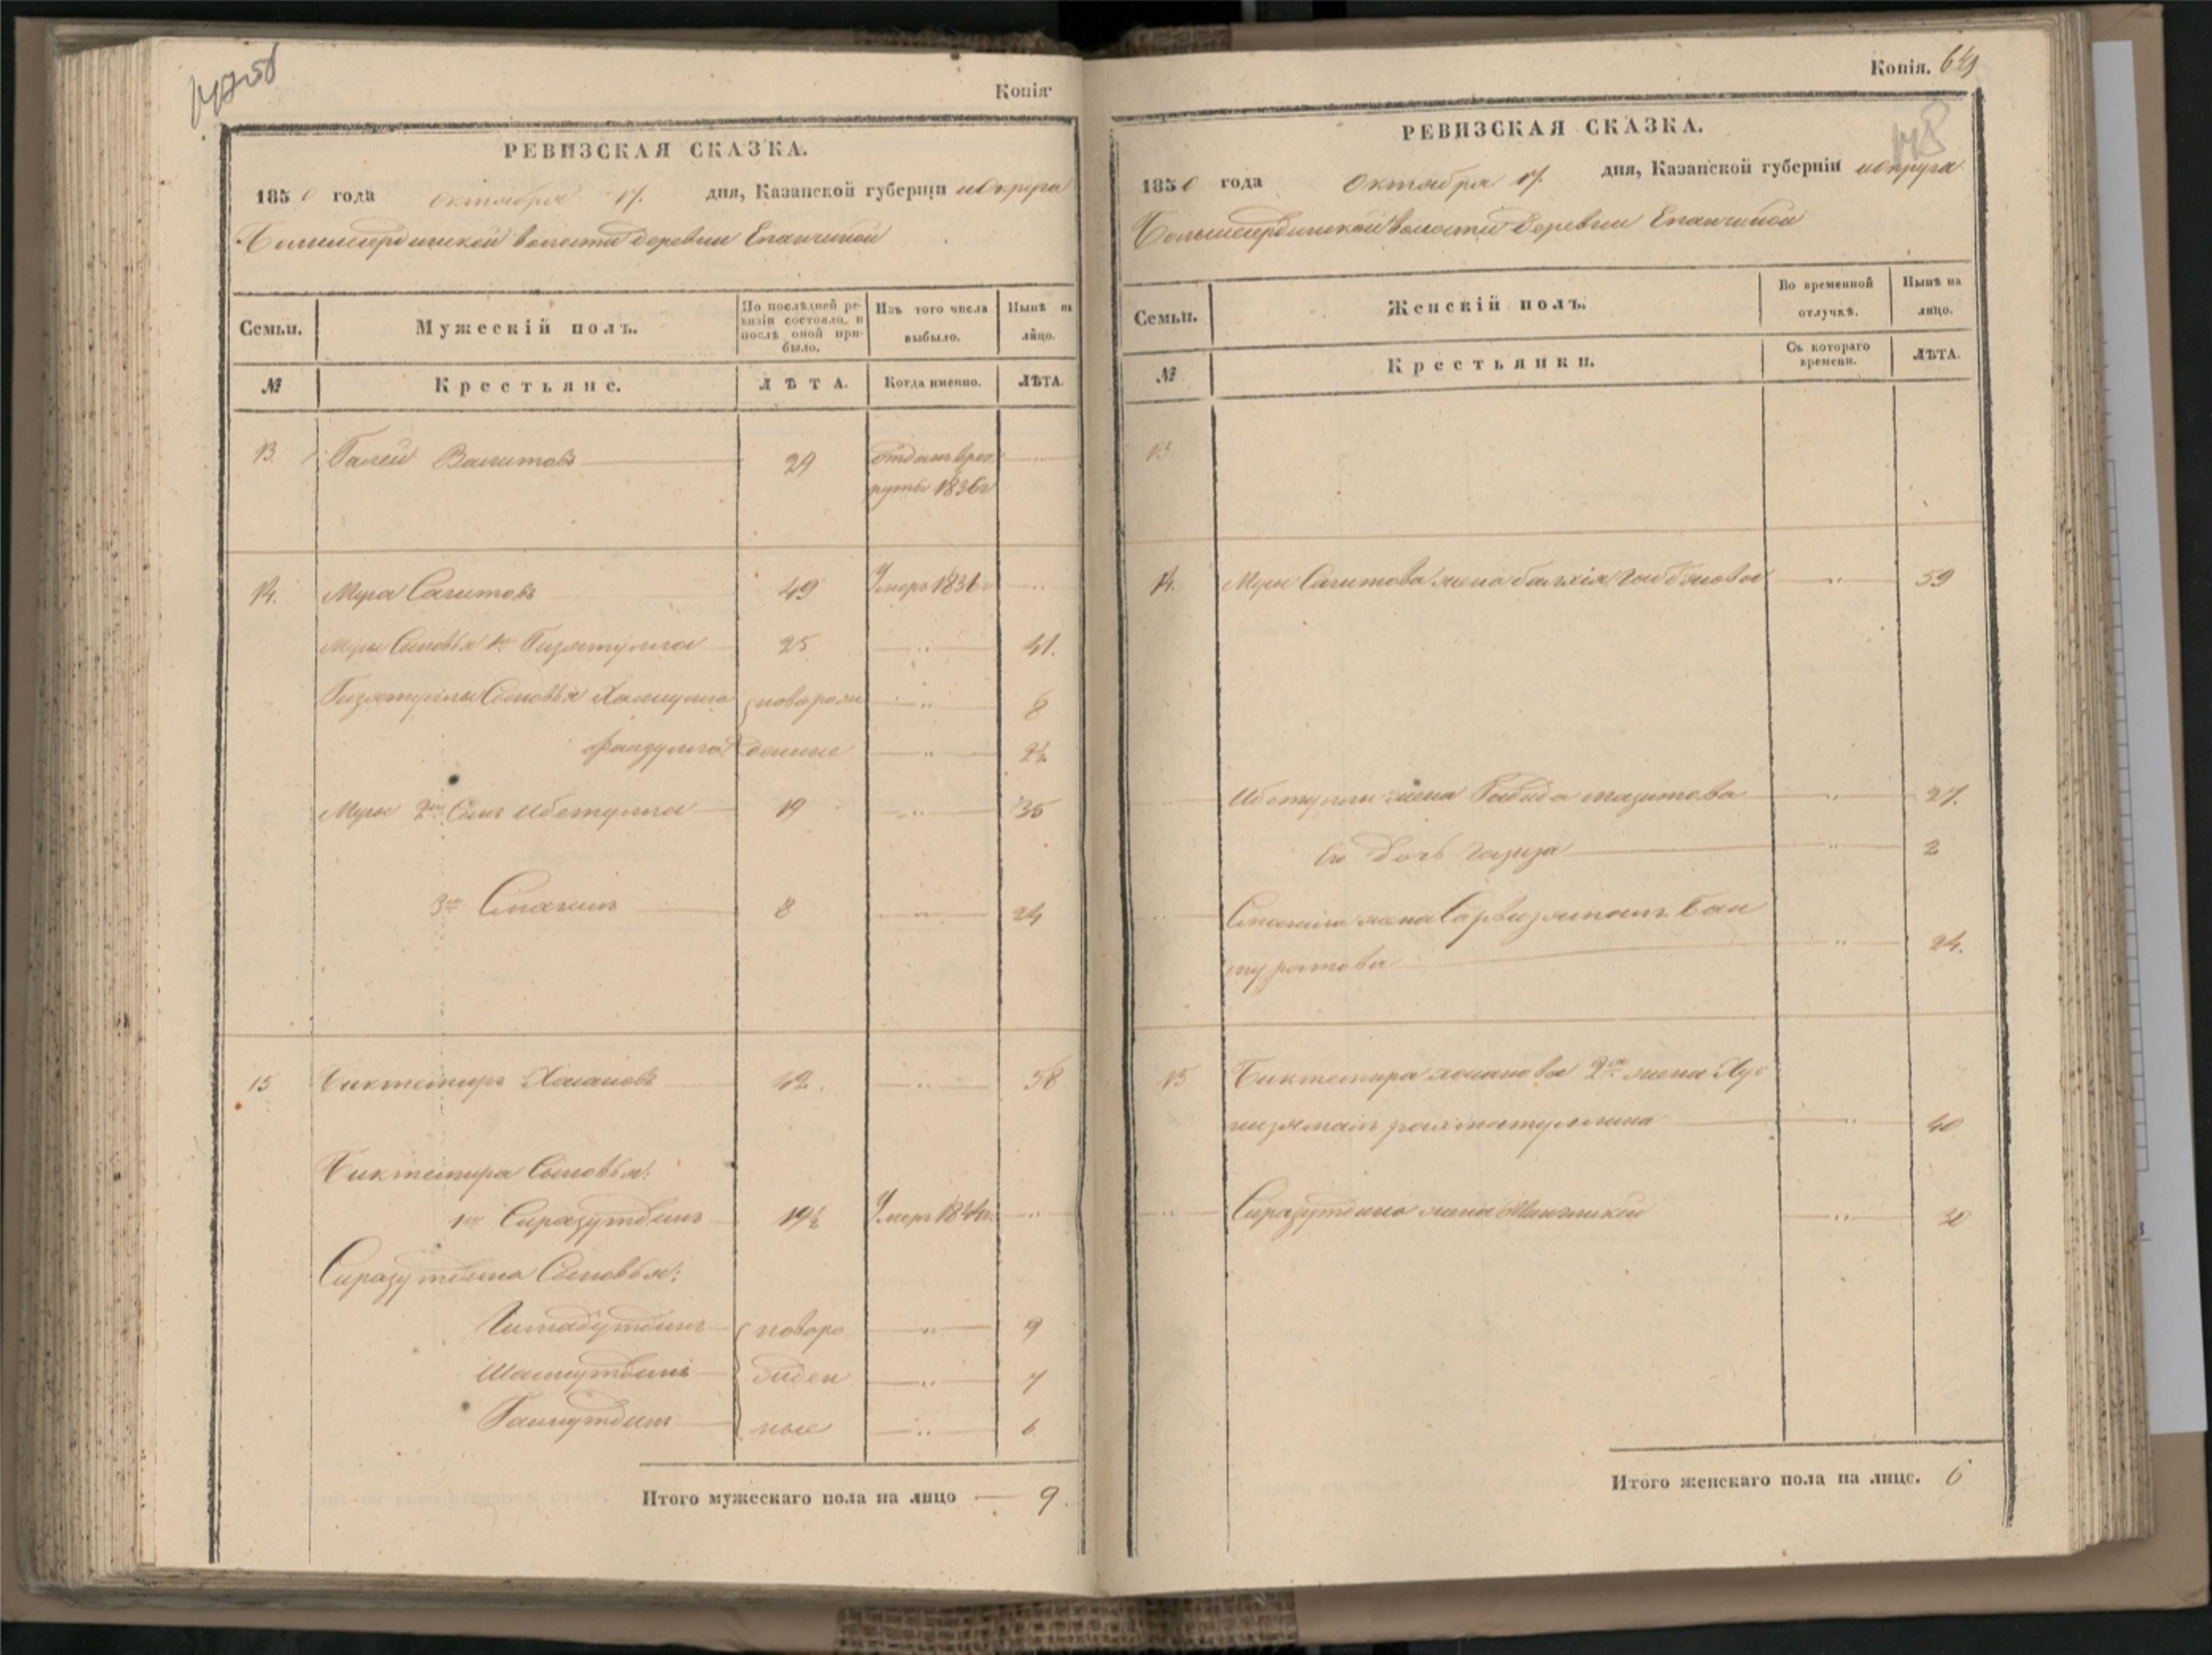 Копія
РЕВИЗСКАЯ СКАЗКА.
1850 года октября 17. дня, Казанской губерніи и округа
Большесердинской волости деревни Епанчиной
Семьи. Мужескій полъ. По послѣдней ревизіи состояло, и послѣ оной прибыло. Изъ того числа выбыло. Нынѣ на лицо.
№ Крестьяне. ЛѢТА. Когда именно. ЛѢТА.
13 Галей Вагитовъ 29 отданъ врек
руты 1836г
14. Муса Сагитовъ 49 Умеръ 1836г
Мусы Сыновья 1й Гизятулла 25 41.
Гизятуллы Сыновья Халиулла новорож 8
Фаизулла денные 2½
Мусы 2й Сынъ Ибетулла 19 35
3й Спагилъ 8 24
15 Биктемиръ Хасановъ 42. 58
Биктемира Сыновья:
1й Сиразутдинъ 19½ Умеръ 1844г.
Сиразутдина Сыновья:
Гималутдинъ новоро 9
Шамсутдинъ жден 7
Галиутдинъ ные 6
Итого мужескаго пола на лицо 9.
Копія. 649
148
РЕВИЗСКАЯ СКАЗКА.
1850 года октября 17. дня, Казанской губерніи и округа
Большесердинской волости деревни Епанчиной
Семьи. Женскій полъ. Во временной отлучкѣ. Нынѣ на лицо.
№ Крестьянки. Съ котораго времени. ЛѢТА.
13
14. Мусы Сагитова жена 59
Ибетуллы жена Габида 27.
Его дочь Газиза 2
Спагила жена Сарвизямалъ Бай
муратова 24.
15 Биктемира Хасанова 2я жена Хус
низямалъ Рахматуллина 40
Сиразутдина жена 30
Итого женскаго пола на лице. 6